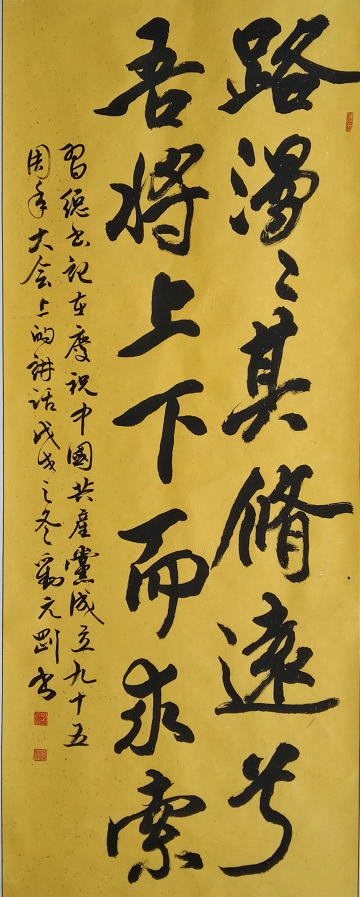 路漫々其脩遠兮
吾將上下而求索
習總书記在慶祝中國共產黨成立九十五
周年大会上的講話戊戌之冬劉元剛书